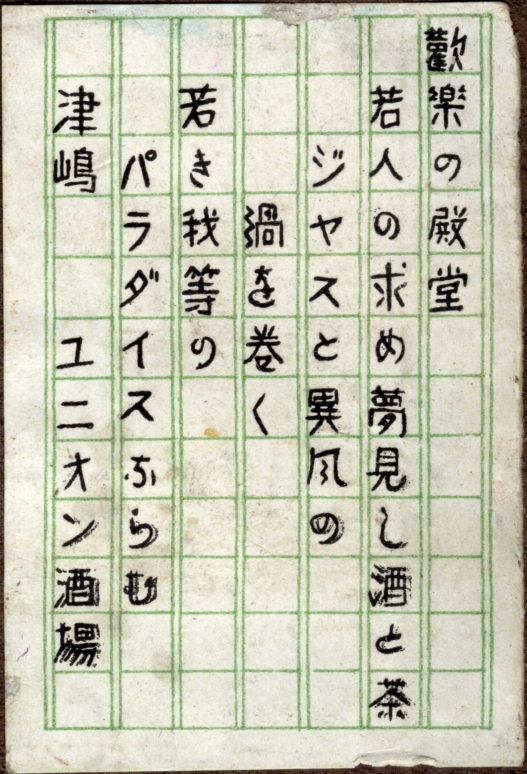 歡楽の殿堂
若人の求め夢見し酒と茶
ジャスと異風の
渦を巻く
若き我等の
パラダイスならむ
津嶋 ユニオン酒場